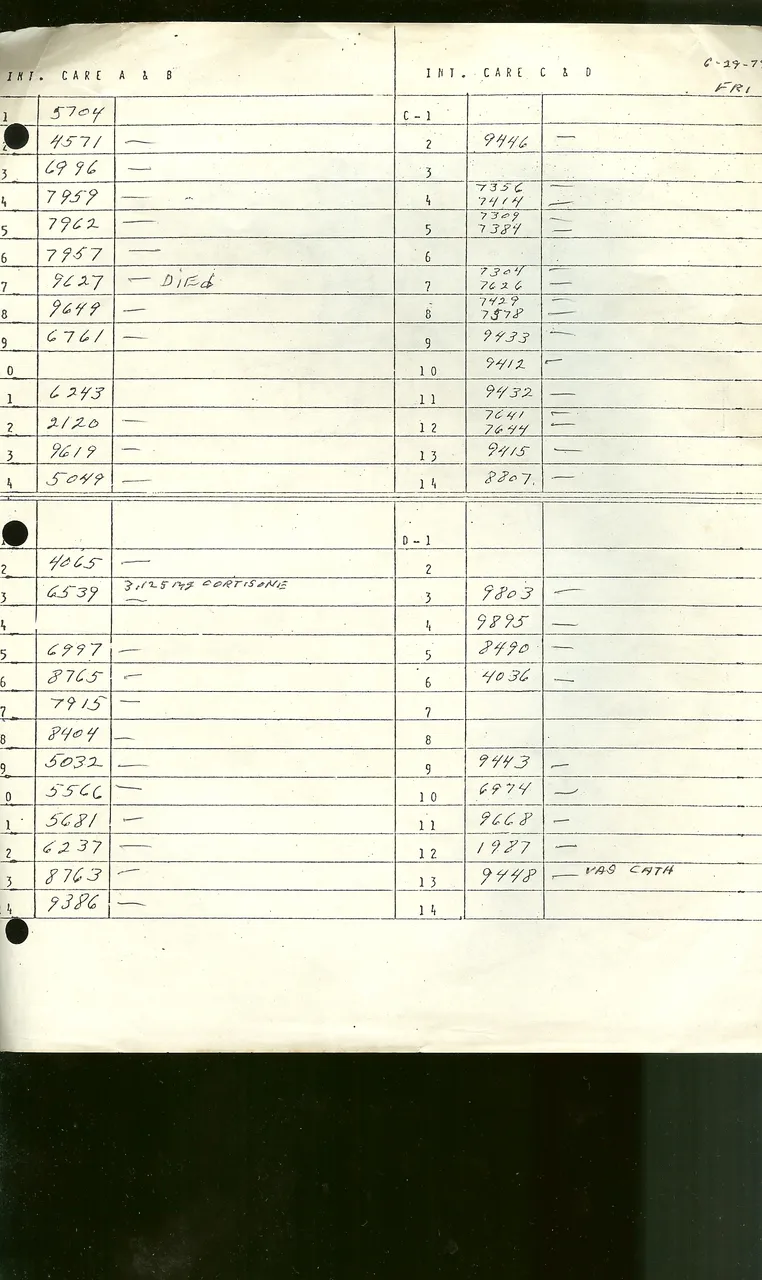 INT. CARE A & B
1 5704
2 4571 —
3 6996 —
4 7959 —
5 7962 —
6 7957 —
7 9627 — DiEd
8 9649 —
9 6761 —
0
1 6243
2 2120 —
3 9619 —
4 5049 —
2 4065 —
3 6539 3.125 mg CORTISONE —
4
5 6997 —
6 8765 —
7 7915 —
8 8404 —
9 5032 —
0 5566 —
1 5681 —
2 6237 —
3 8763 —
4 9386 —
INT. CARE C & D
6-29-7
FRI
C-1
2 9446 —
3
7356 —
4 7414 —
7309 —
5 7384 —
6
7304 —
7 7626 —
7429 —
8 7578 —
9 9433 —
10 9412 —
11 9432 —
7641 —
12 7644 —
13 9415 —
14 8807. —
D-1
2
3 9803 —
4 9895 —
5 8490 —
6 4036 —
7
8
9 9443 —
10 6974 —
11 9668 —
12 1987 —
13 9448 — VAG CATH
14